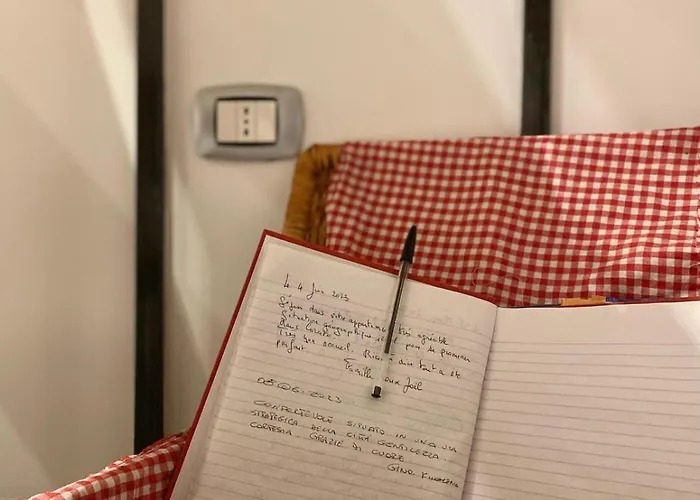 Le 4 Juin 2023
Séjour dans votre appartement très agréable
Situation géographique pour se promener
dans
Très bon accueil. Rien à dire tout a été
parfait
Famille Joël
05.06.2023
CONFORTEVOLE SITUATO IN UNA VIA
STRATEGICA DELLA CITTÀ GENTILEZZA
CORTESIA. GRAZIE DI CUORE
GINO